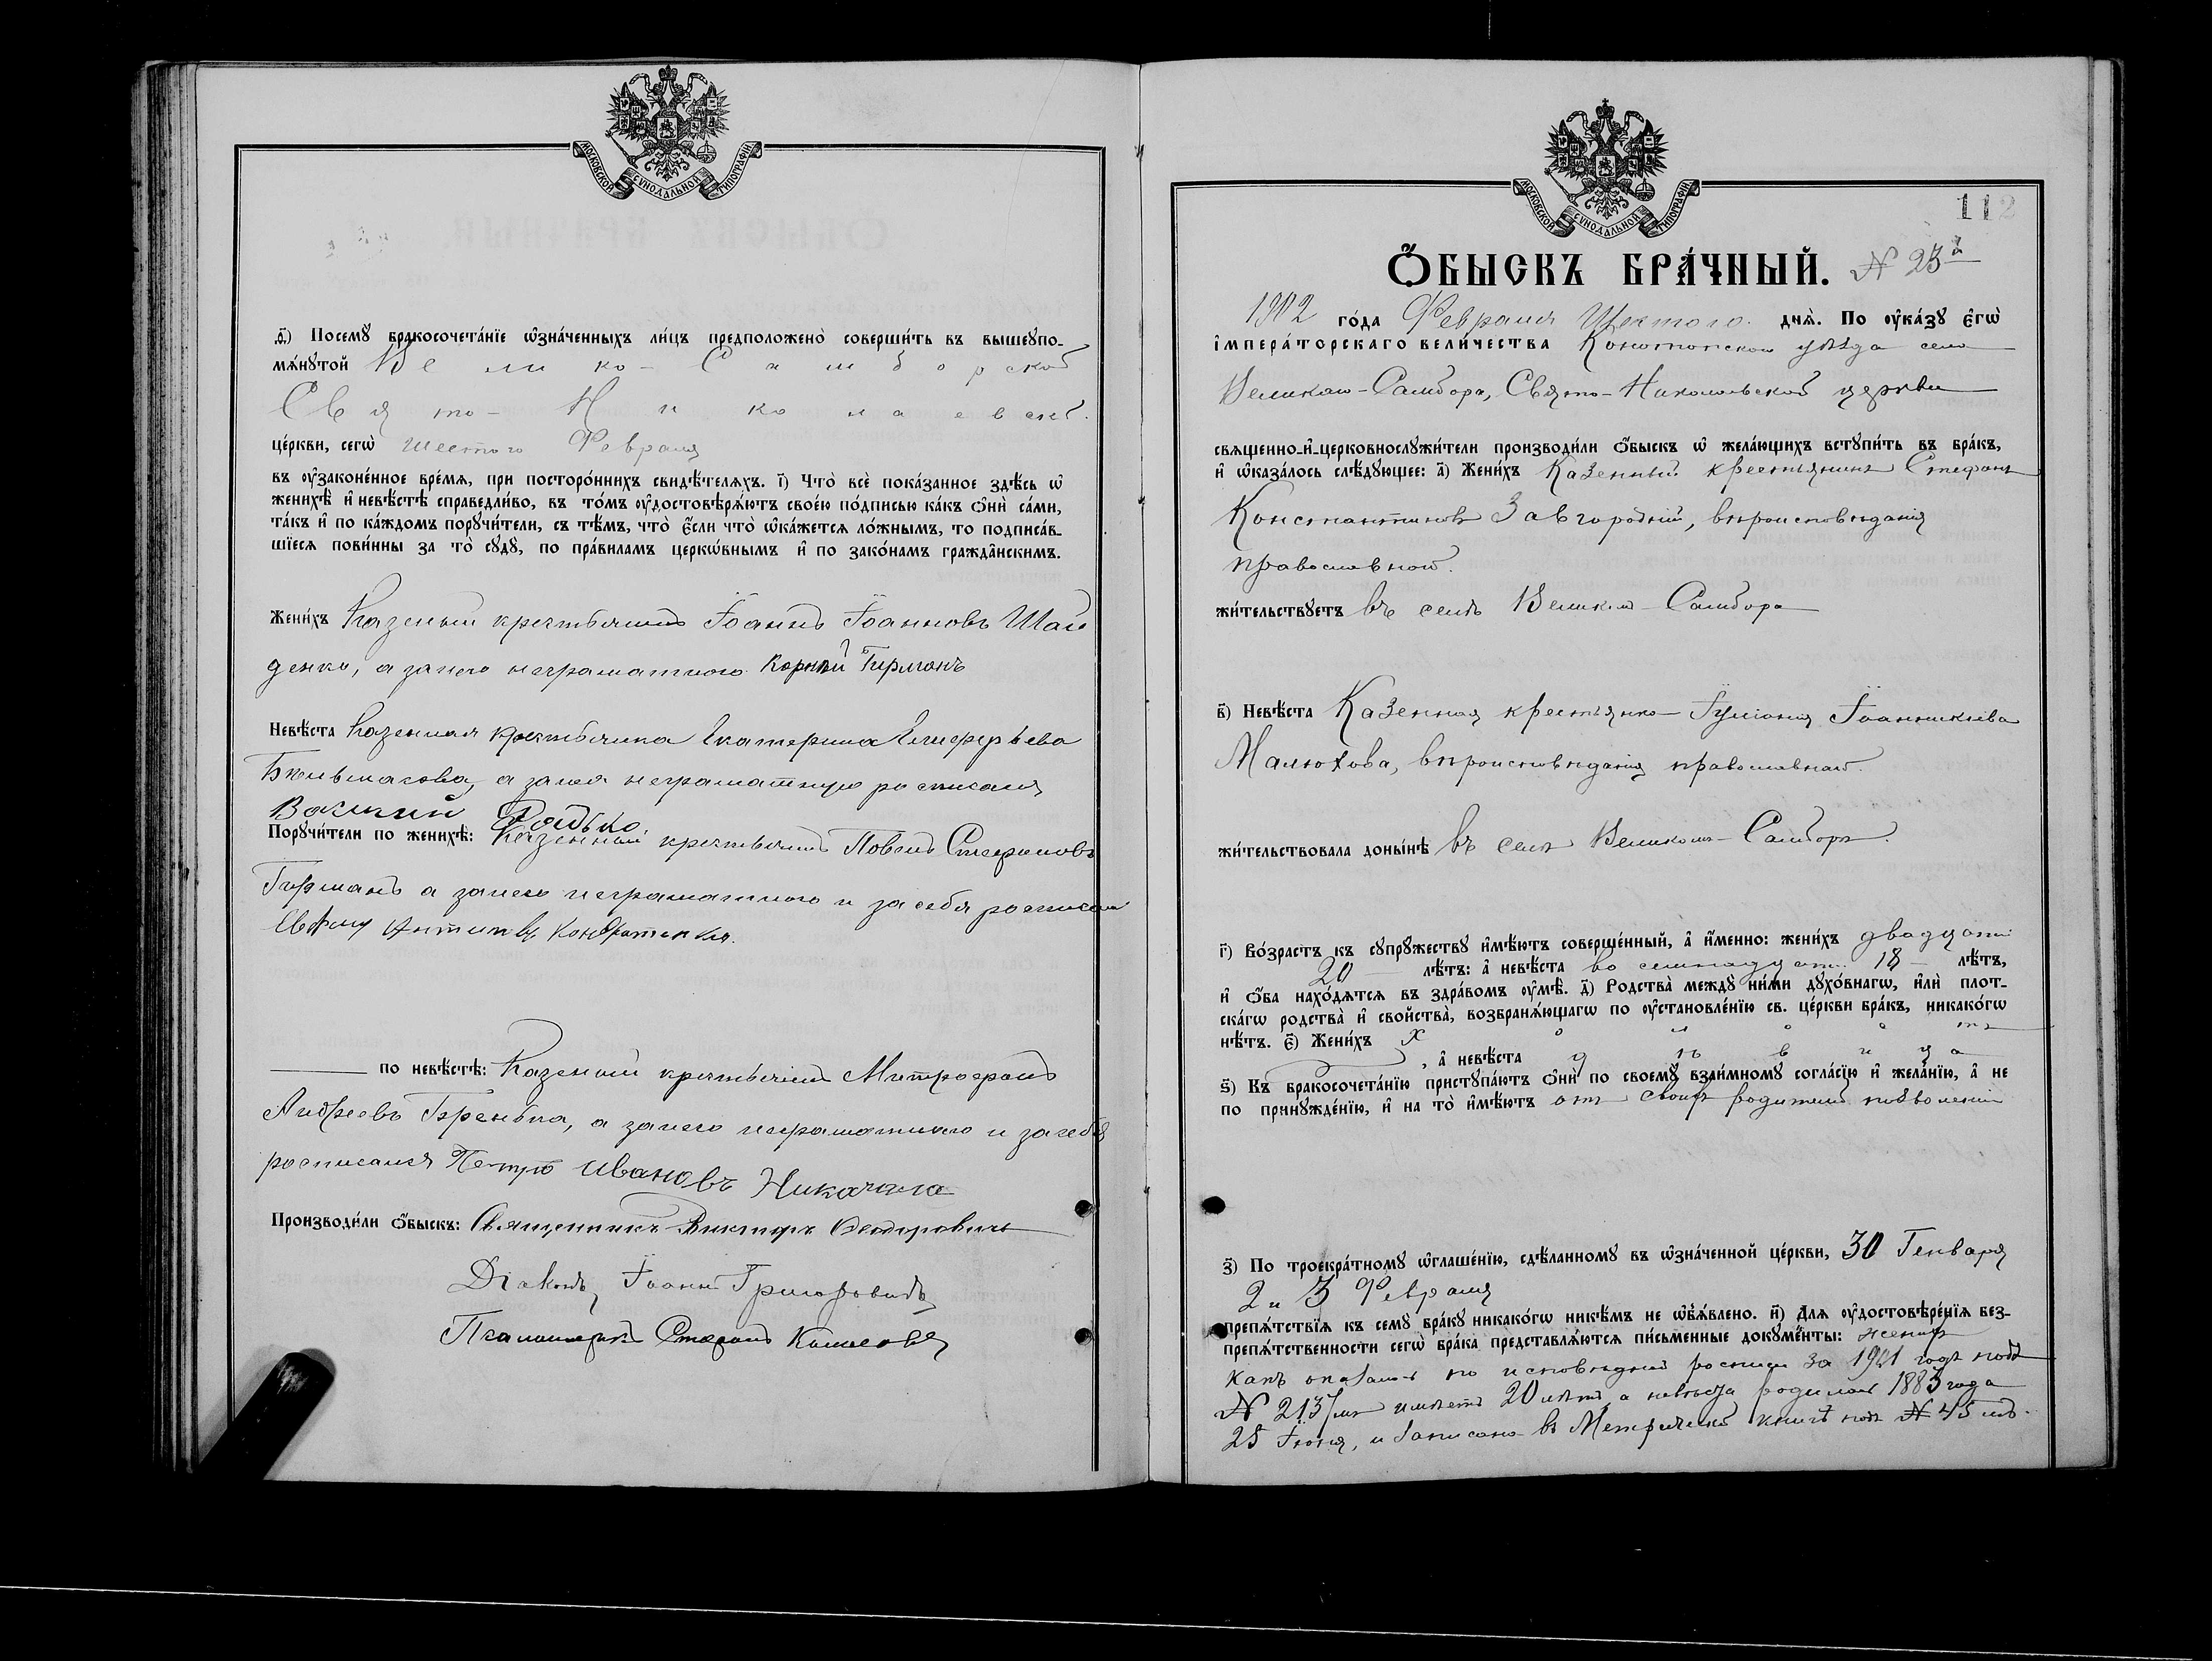 МОСКОВСКОЙ СѴНОДАЛЬНОЙ ТИПОГРАФІИ
д҃і) Посемꙋ бракосочета́нїе ѡ҆зна́ченныхъ ли́цъ предположено̀ соверши́ть въ вышеꙋпо-
мѧ́нꙋтой Велико-Самборской
Свято-Николаевской
це́ркви, сегѡ̀ шестого Февраля
въ ᲂу҆зако́ненное вре́мѧ, при посторо́ннихъ свидѣ́телѧхъ. і҃) Что̀ всѐ пока́занное здѣ́сь ѡ҆
женихѣ̀ и҆ невѣ́стѣ справедли́во, въ то́мъ ᲂу҆достовѣрѧ́ютъ свое́ю по́дписью ка́къ ѻ҆нѝ са́ми,
та́къ и҆ по ка́ждомъ порꙋчи́тели, съ тѣ́мъ, что̀ є҆́сли что̀ ѡ҆ка́жетсѧ ло́жнымъ, то подписа́в-
шїесѧ пови́нны за то̀ сꙋдꙋ̀, по пра́виламъ церко́внымъ и҆ по зако́намъ гражда́нскимъ.
Жени́хъ Казеный крестьянинъ Іоаннъ Іоанновъ Шай
денко, а занего неграматного Корнѣй Гирманъ
Невѣ́ста Казенная крестьянка Екатерина Елисеферьева
а занея неграматную росписался
Василий Родько.
Порꙋчи́тели по женихѣ̀: Казенный крестьянинъ Павелъ Стефановъ
Гирманъ а занего неграматного и за себя росписался
Антиповъ
по невѣ́стѣ: Казеный крестьянинъ Митрофанъ
Андреевъ а занего неграматного и засебя
росписался Петро Ивановъ
Производи́ли ѻ҆́быскъ: Священникъ Викторъ Ѳедоровичъ
Діаконъ Іоаннъ Григоровичъ
Псаломщикъ Стефанъ
МОСКОВСКОЙ СѴНОДАЛЬНОЙ ТИПОГРАФІИ
112
Ѻ҆́БЫСКЪ БРА́ЧНЫЙ. № 23й
1902 го́да Февраля Шестого днѧ̀. По ᲂу҆ка́зꙋ є҆гѡ̀
і҆мпера́торскаго вели́чества Конотопскаго уѣзда села
Великаго-Самбора, Свято-Николаевской церкви
свѧще́нно-и҆-церковнослꙋжи́тели производи́ли ѻ҆́быскъ ѡ҆ жела́ющихъ встꙋпи́ть въ бра́къ,
и҆ ѡ҆каза́лось слѣ́дꙋющее: а҃) Жени́хъ Казенный крестьянинъ Стефанъ
Константиновъ Завгородній, вѣроисповѣданія
православного.
жи́тельствꙋетъ въ селѣ Великом-Самборѣ
в҃) Невѣ́ста Казенная крестьянка Іуліанія Іоанникіева
Малюхова, вѣроисповѣданія православнаго.
жи́тельствовала доны́нѣ въ селѣ Великомъ-Самборѣ.
г҃) Во́зрастъ къ сꙋпрꙋ́жествꙋ и҆мѣ́ютъ соверше́нный, а҆ и҆́менно: жени́хъ двадцати
20 лѣ́тъ: а҆ невѣ́ста 18 лѣ́тъ,
и҆ ѻ҆́ба нахо́дѧтсѧ въ здра́вомъ ᲂу҆мѣ̀. д҃) Родства̀ междꙋ̀ ни́ми дꙋхо́внагѡ, и҆лѝ плот-
ска́гѡ родства̀ и҆ сво́йства, возбранѧ́ющагѡ по ᲂу҆становле́нїю св. це́ркви бра́къ, никако́гѡ
нѣ́тъ. є҃) Жени́хъ холостъ
, а҆ невѣ́ста дѣвица
ѕ҃) Къ бракосочета́нїю пристꙋпа́ютъ ѻ҆нѝ по своемꙋ̀ взаи́мномꙋ согла́сїю и҆ жела́нїю, а҆ не
по принꙋжде́нїю, и҆ на то̀ и҆мѣ́ютъ отъ своихъ родителей позволеніе
з҃) По троекра́тномꙋ ѡ҆глаше́нїю, сдѣ́ланномꙋ въ ѡ҆зна́ченной це́ркви, 30 Генваря
2 и 3 Февраля
препѧ́тствїѧ къ семꙋ̀ бра́кꙋ никако́гѡ никѣ́мъ не ѡ҆б̾ѧ́влено. и҃) Длѧ ᲂу҆достовѣре́нїѧ без-
препѧ́тственности сегѡ̀ бра́ка представлѧ́ютсѧ пи́сьменные докꙋме́нты: женихъ
какъ оказалось по исповѣдной росписи за 1901 годъ подъ
№ 213 имѣетъ 20 лѣтъ а невѣста родилась 1883 года
25 Іюня, и записана въ Метрической книгѣ подъ № 45